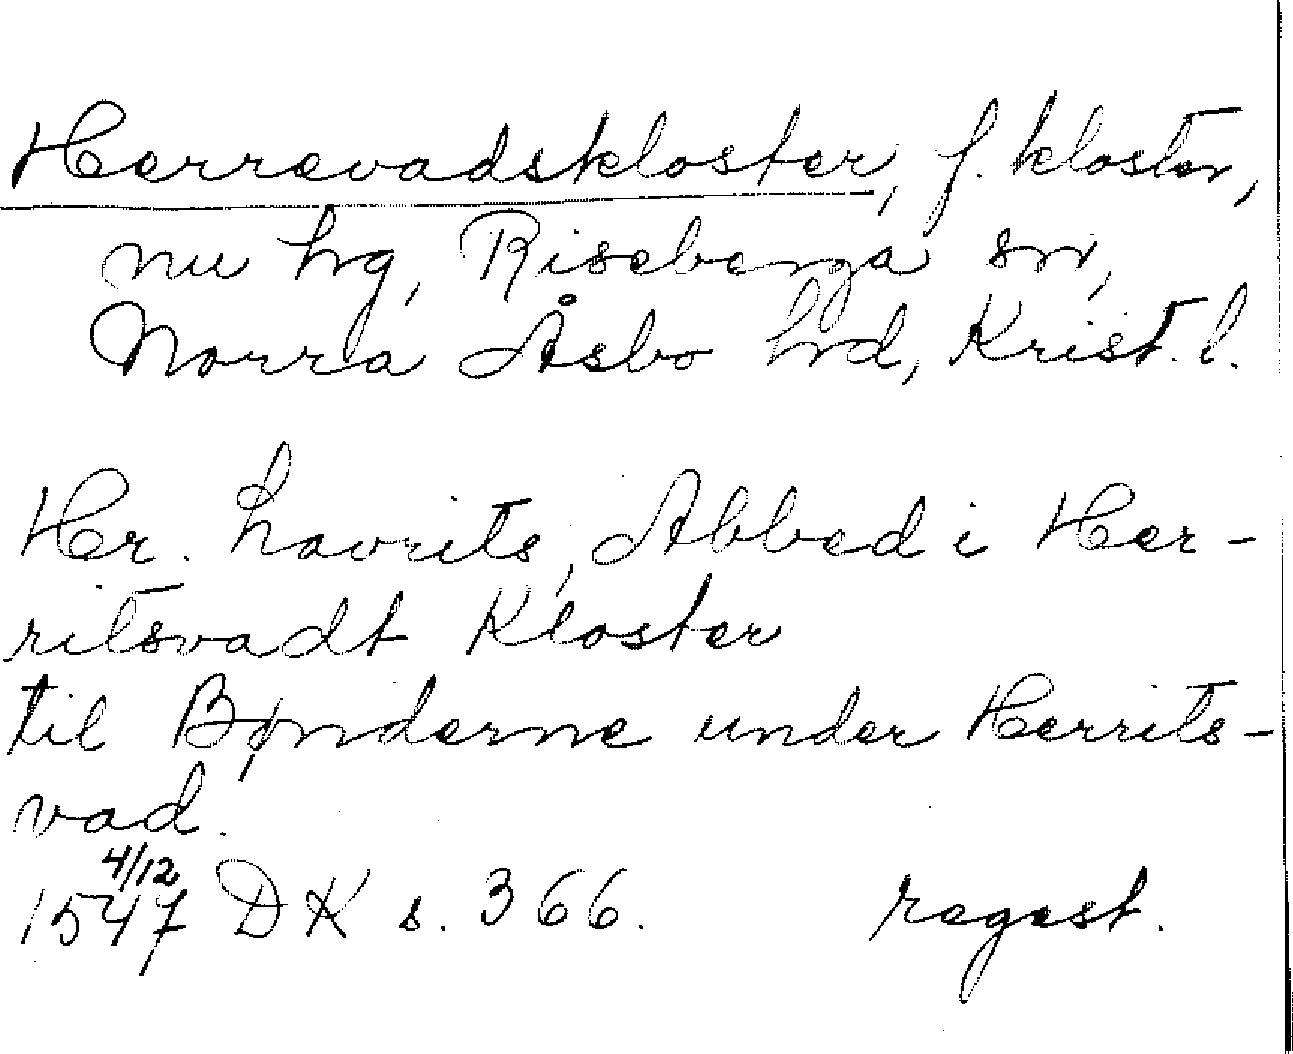 Herrevadskloster, f. kloster,
nu hg, Riseberga sn,
Norra Åsbo hd, Krist. l.
Her. Lavrits, Abbed i Her-
ritsvadt Kloster
til Bønderne under Herrits-
vad.
4/12
1547 DK s. 366. regest.